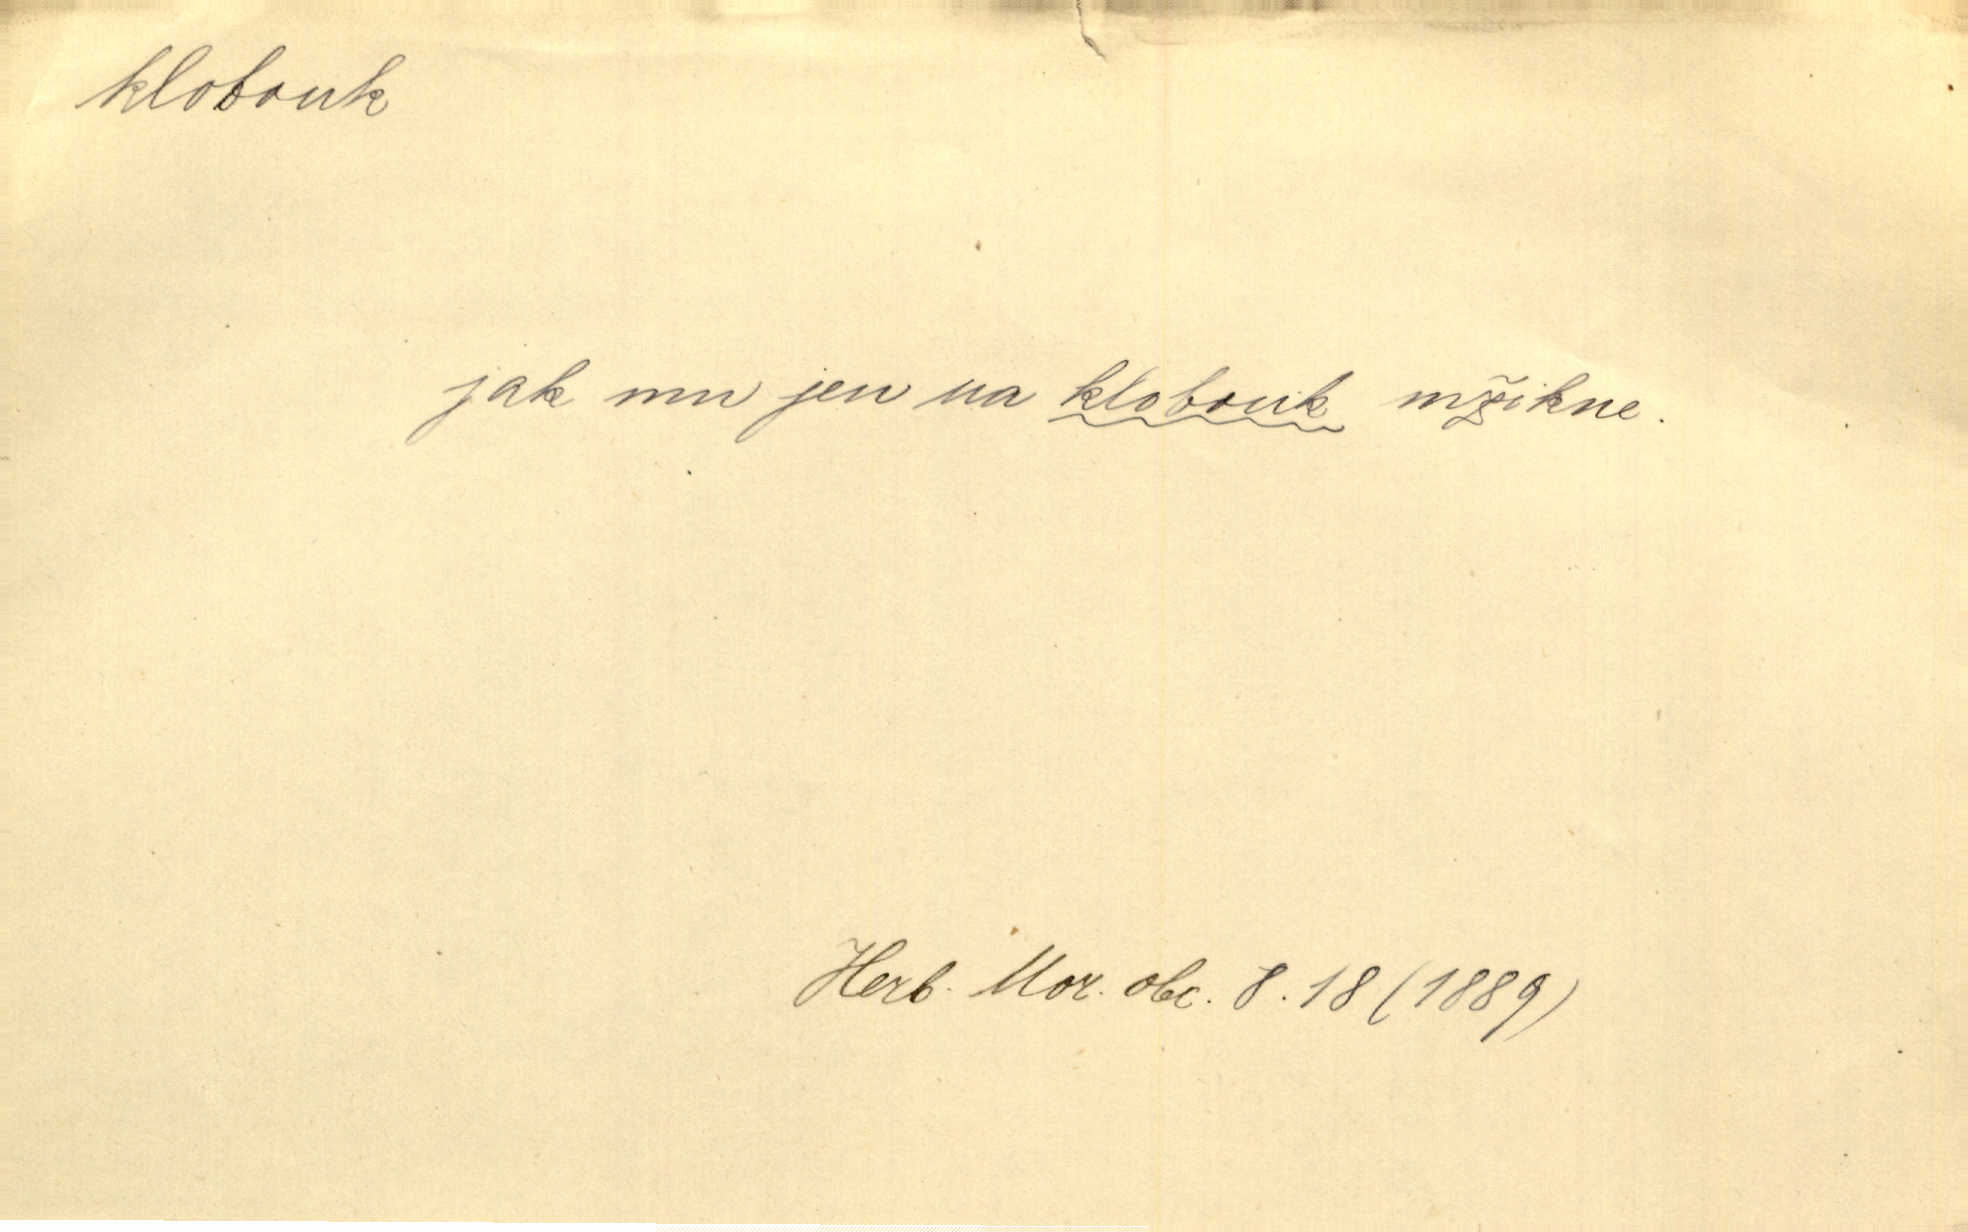 klobouk
jak mu jen na klobouk mžikne.
Herb. Mor. obr. 8. 18 (1889)